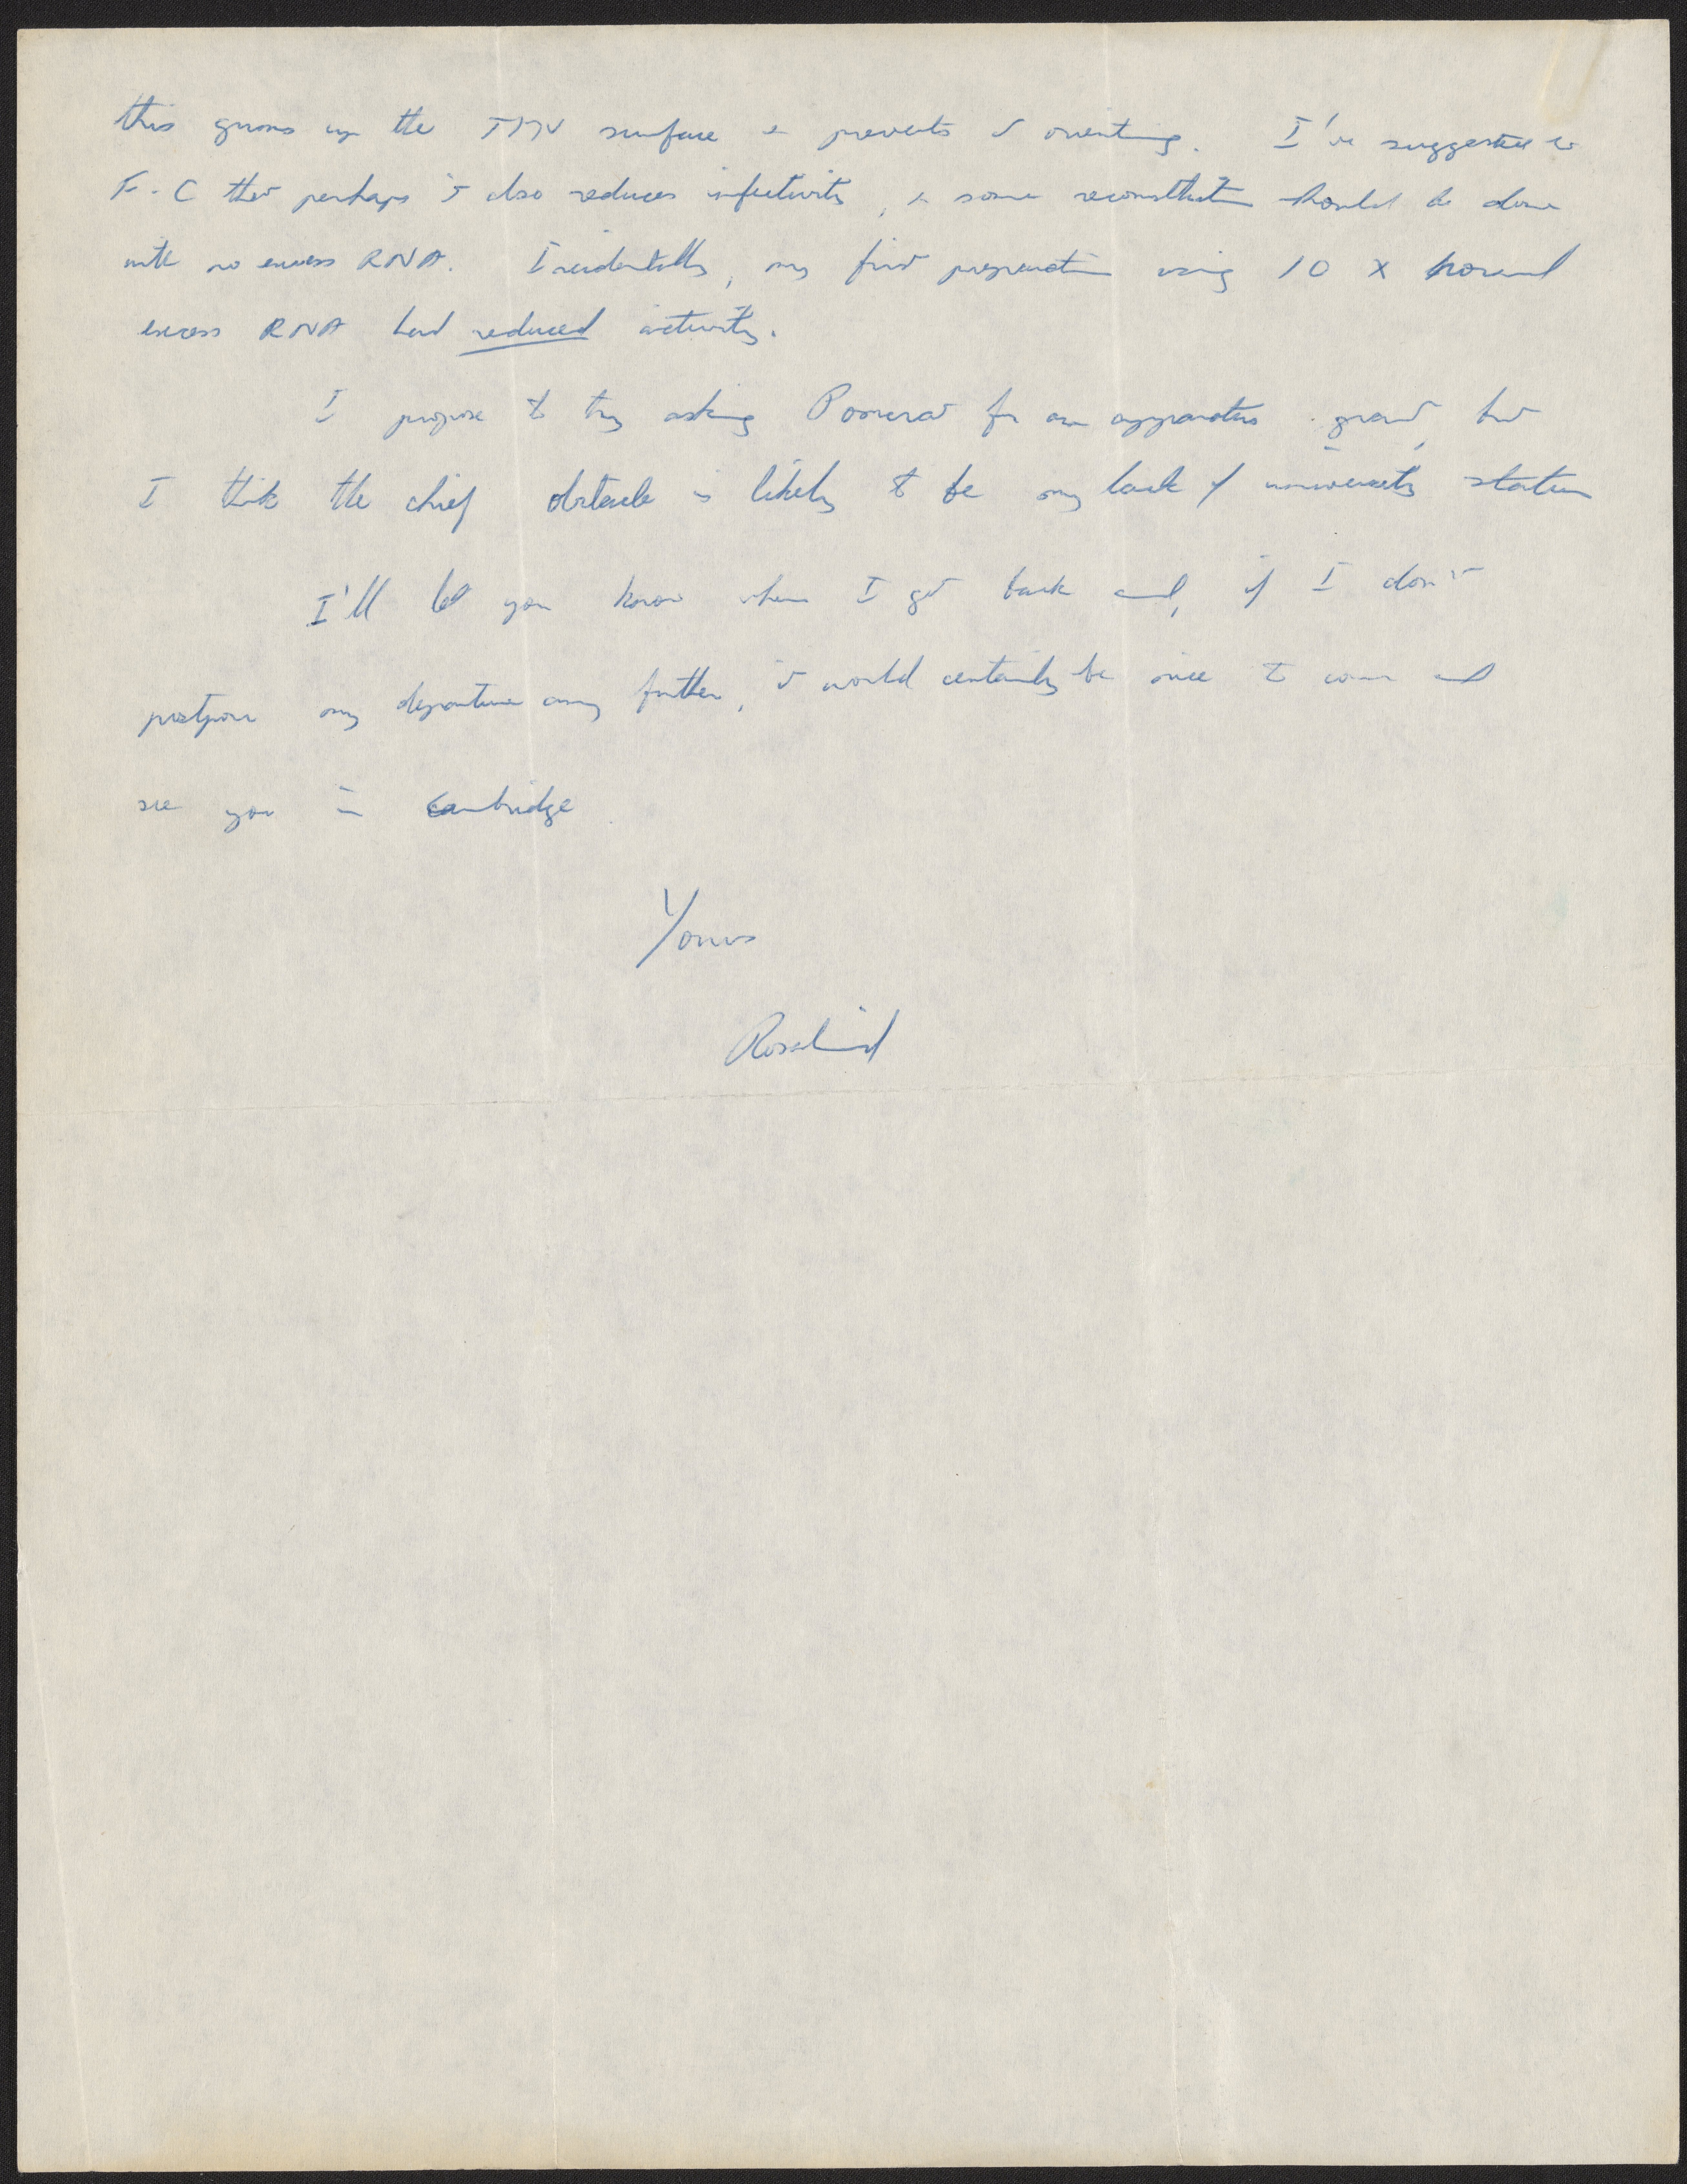 this gums up the TMV surface & prevents it orienting. I've suggested to
F.-C that perhaps it also reduces infectivity, & some reconstitution should be done
with no excess RNA. Incidentally, my first preparation using 10 x normal
excess RNA had reduced activity.
I propose to try asking Pomerat for an apparatus grant, but
I think the chief obstacle is likely to be my lack of university status
I'll let you know when I get back and, if I don't
postpone my departure any further, it would certainly be nice to come and
see you in Cambridge
Yours
Rosalind